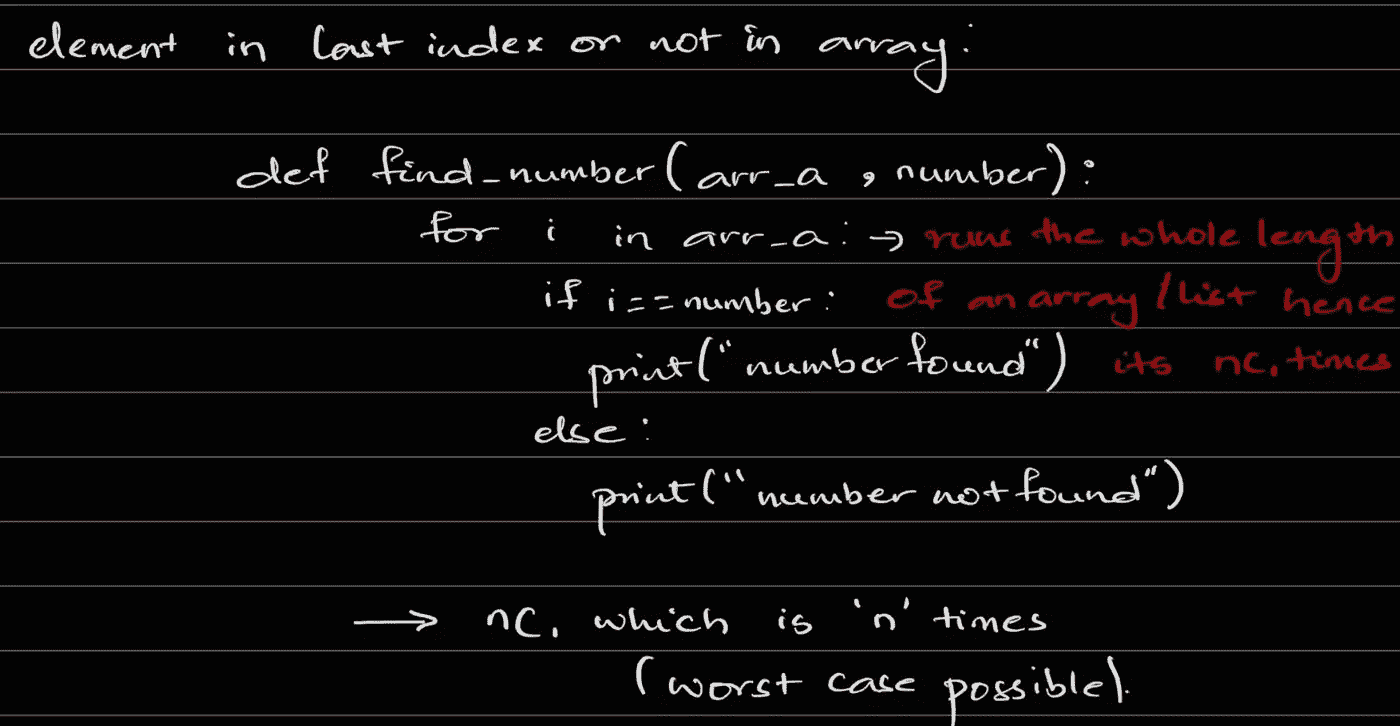 element in last index or not in array:
def find_number(arr_a , number):
for i in arr_a: → runs the whole length
if i==number: of an array/list hence
print("number found") its nC₁ times
else:
print("number not found")
→ nC₁ which is 'n' times
(worst case possible).